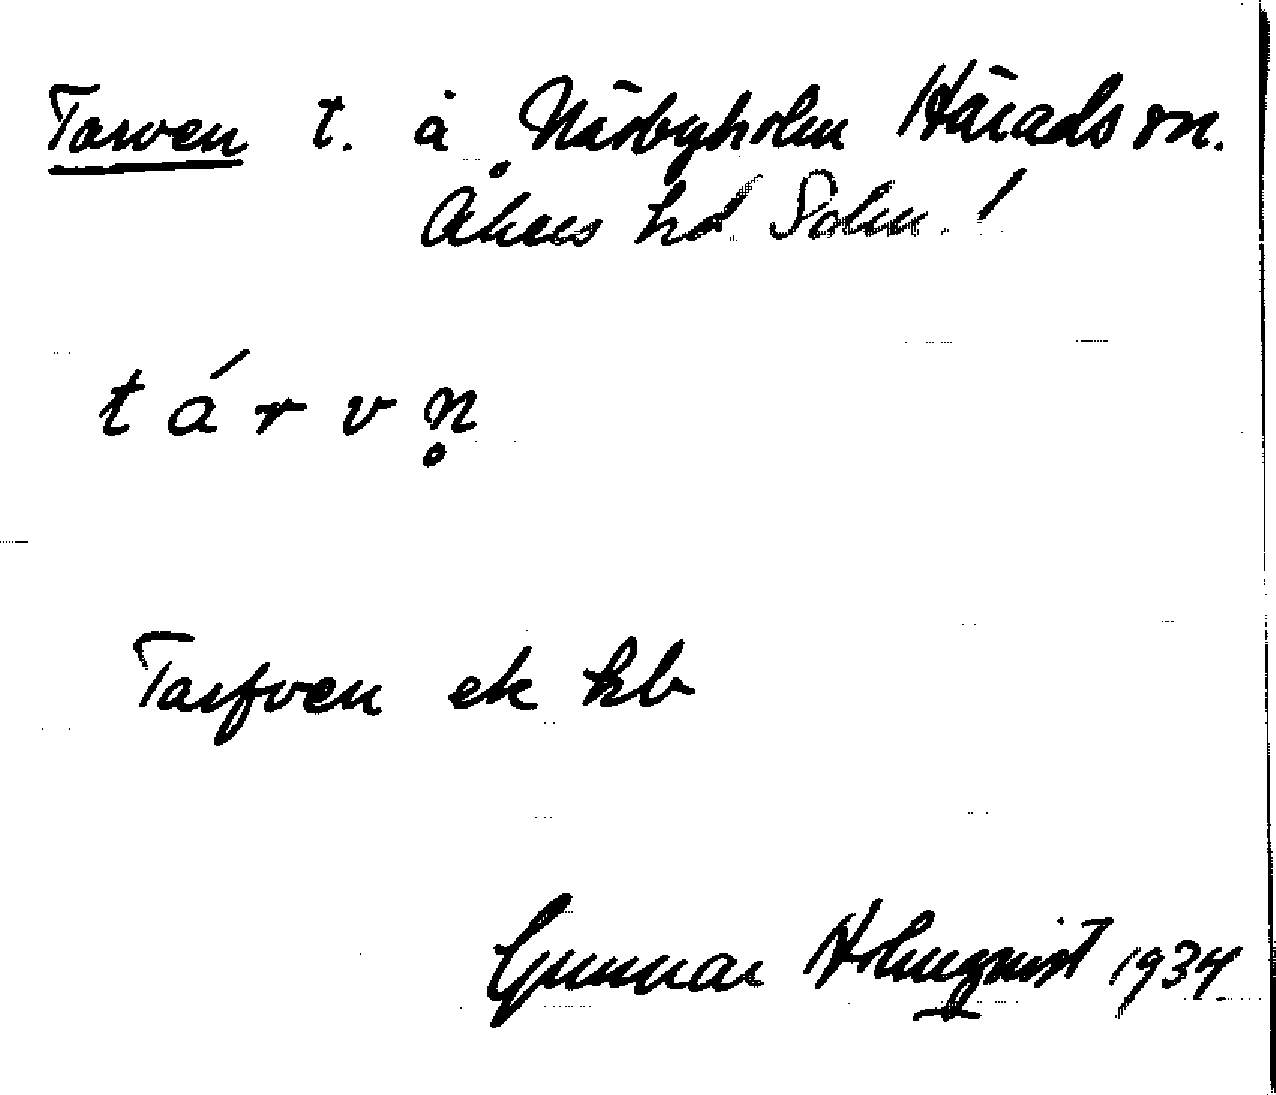 Tarven t. å Närbyholm Härads sn.
Åkers hd Sdm. !
t á r v n̥
Tarfven ek kb
Gunnar Holmqvist 1934